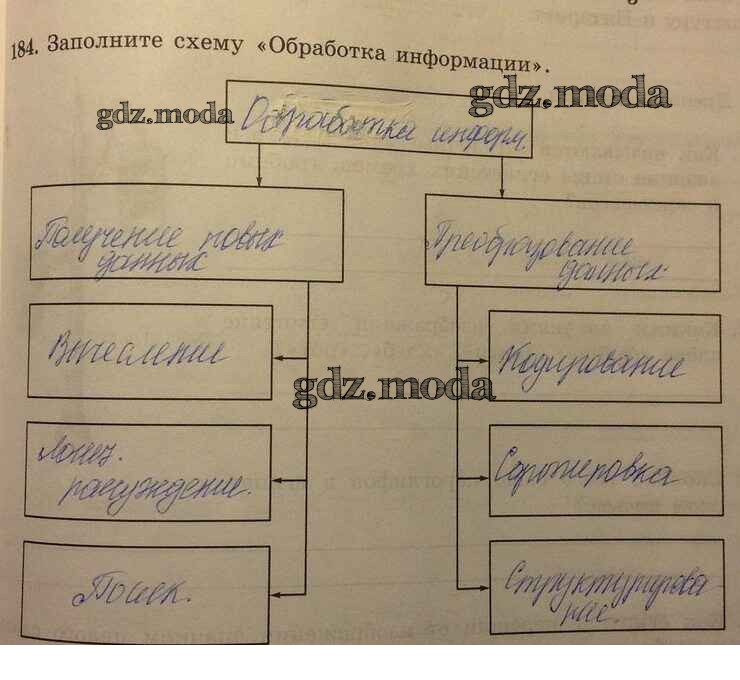 184. Заполните схему «Обработка информации».
gdz.moda
gdz.moda
Обработка информ.
Получение новых
данных
Преобразование
данных
Вычисление
Кодирование
gdz.moda
рассуждение.
Сортировка
Поиск.
Структурирова-
ние.